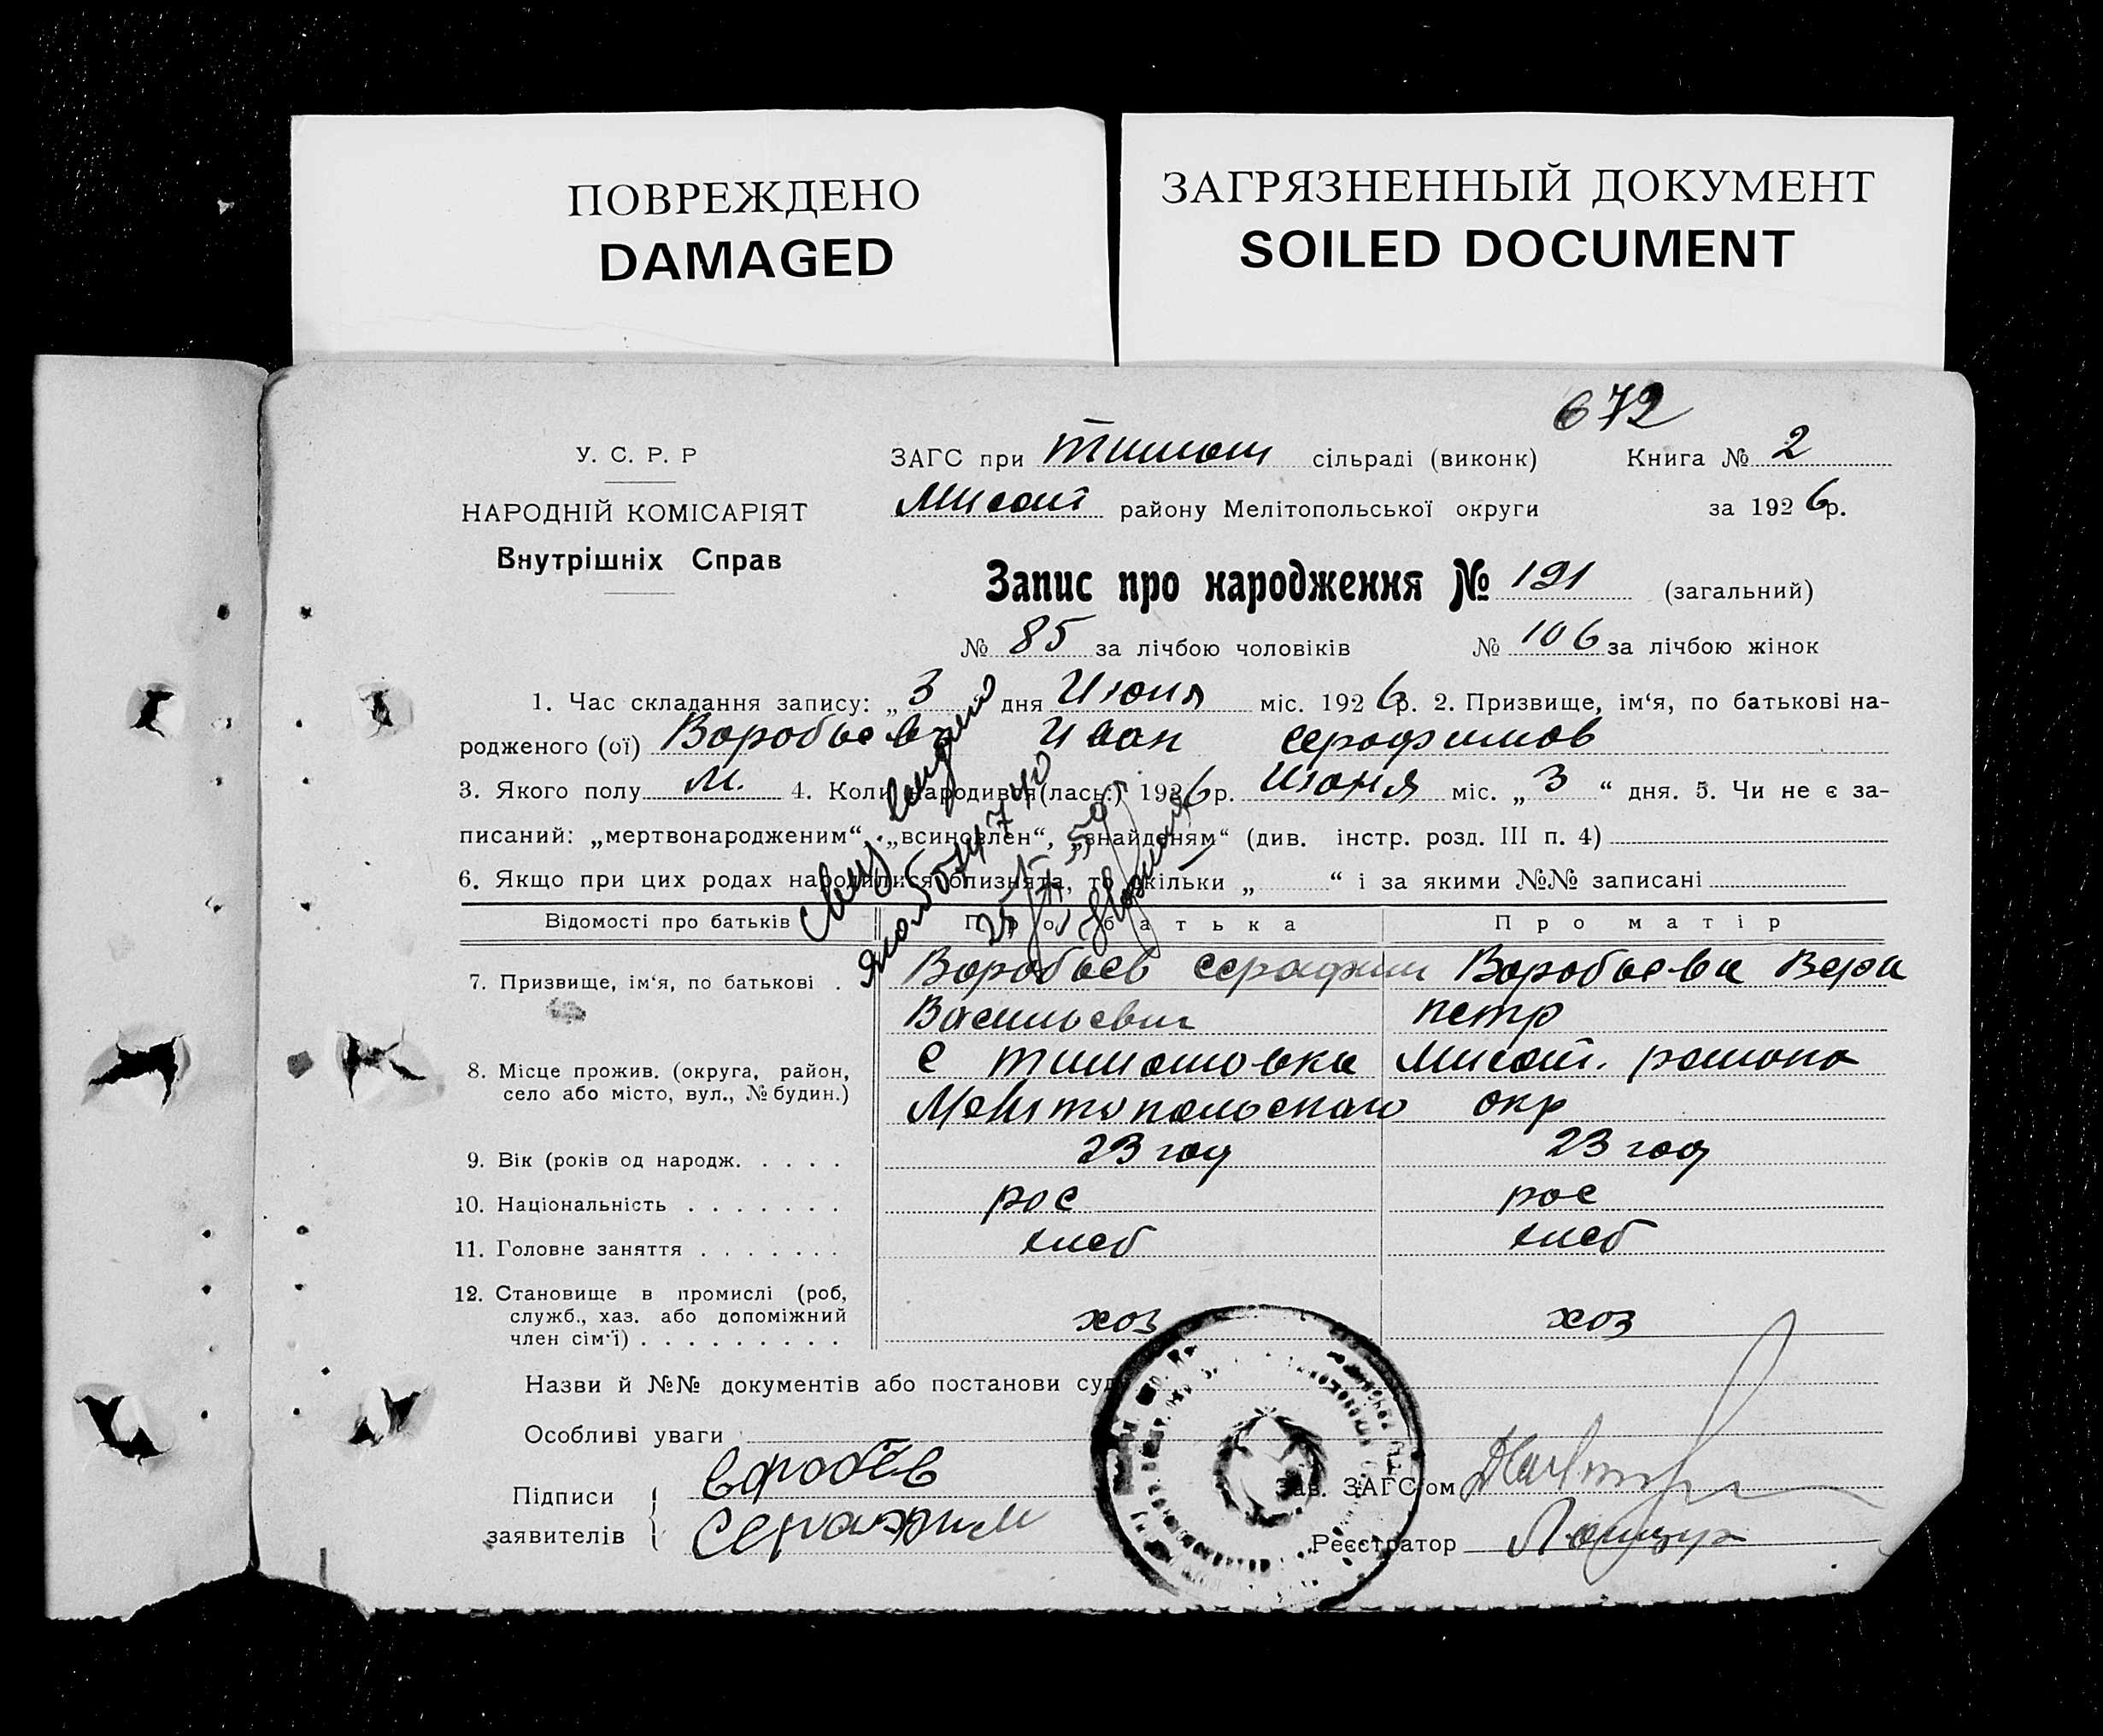 ПОВРЕЖДЕНО
DAMAGED
ЗАГРЯЗНЕННЫЙ ДОКУМЕНТ
SOILED DOCUMENT
672
У. С. Р. Р
НАРОДНІЙ КОМІСАРІЯТ
Внутрішніх Справ
ЗАГС при Тимош сільраді (виконк) Книга № 2
району Мелітопольської округи за 1926р.
Запис про народження № 191 (загальний)
№ 85 за лічбою чоловіків № 106 за лічбою жінок
1. Час складання запису: „3 дня Июня міс. 1926р. 2. Призвище, ім‘я, по батькові на-
родженого (ої) Воробьев Иван Серафимов
3. Якого полу М. 4. Коли народився(лась:) 1926р. Июня міс. „3“ дня. 5. Чи не є за-
писаний: „мертвонародженим“, „всиновлен“, „знайденям“ (див. інстр. розд. III п. 4)
6. Якщо при цих родах народилися близнята, то скільки „ “ і за якими №№ записані
Відомості про батьків Про батька Про матір
7. Призвище, ім‘я, по батькові . Воробьев Серафим Воробьева Вера
Васильевич петр
8. Місце прожив. (округа, район, село або місто, вул., № будин.) С Тимошовка района
Мелитопольскаго окр
9. Вік (років од народж. . . . . 23 год 23 год
10. Національність . . . . . . . рос рос
11. Головне заняття . . . . . . . хлеб хлеб
12. Становище в промислі (роб, служб., хаз. або допоміжний член сім‘ї) . . . . . . . . . хоз хоз
Назви й №№ документів або постанови суд
Особливі уваги
Підписи заявителів
Серафим
Зав. ЗАГС‘ом
Реєстратор